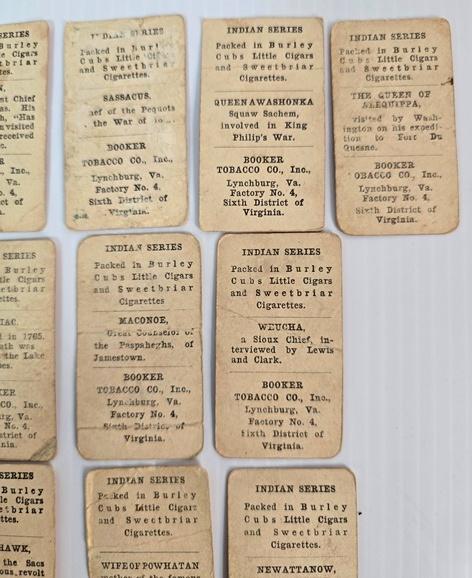 SERIES
Burley
le Cigars
tbriar
tes.
N,
st Chief
as. His
h, "Has
visited
received
R
o., Inc.,
Va.
o. 4,
rict of
INDIAN SERIES
Packed in Burley
Cubs Little Cigars
and Sweetbriar
Cigarettes.
SASSACUS,
ief of the Pequots
the War of
BOOKER
TOBACCO CO., Inc.,
Lynchburg, Va.
Factory No. 4,
Sixth District of
Virginia.
INDIAN SERIES
Packed in Burley
Cubs Little Cigars
and Sweetbriar
Cigarettes.
QUEEN AWASHONKA
Squaw Sachem,
involved in King
Philip's War.
BOOKER
TOBACCO CO., Inc.,
Lynchburg, Va.
Factory No. 4,
Sixth District of
Virginia.
INDIAN SERIES
Packed in Burley
Cubs Little Cigars
and Sweetbriar
Cigarettes.
THE QUEEN OF
ALEQUIPPA,
visited by Wash-
ington on his expedi-
tion to Fort Du
Quesne.
BOOKER
TOBACCO CO., Inc.,
Lynchburg, Va.
Factory No. 4,
Sixth District of
Virginia.
SERIES
Burley
le Cigars
etbriar
ettes.
IAC,
d in 1765.
ath was
the Lake
es.
ER
o., Inc.,
rg, Va.
No. 4,
trict of
ia.
INDIAN SERIES
Packed in Burley
Cubs Little Cigars
and Sweetbriar
Cigarettes
MACONOE,
Great Counselor of
the Paspaheghs, of
Jamestown.
BOOKER
TOBACCO CO., Inc.,
Lynchburg, Va.
Factory No. 4,
Sixth District of
Virginia.
INDIAN SERIES
Packed in Burley
Cubs Little Cigars
and Sweetbriar
Cigarettes.
WEUCHA,
a Sioux Chief, in-
terviewed by Lewis
and Clark.
BOOKER
TOBACCO CO., Inc.,
Lynchburg, Va.
Factory No. 4,
Sixth District of
Virginia.
SERIES
Burley
le Cigars
etbriar
ttes.
HAWK,
the Sacs
ous, revolt
INDIAN SERIES
Packed in Burley
Cubs Little Cigars
and Sweetbriar
Cigarettes.
WIFE OF POWHATAN
mother of the famous
INDIAN SERIES
Packed in Burley
Cubs Little Cigars
and Sweetbriar
Cigarettes.
NEWATTANOW,